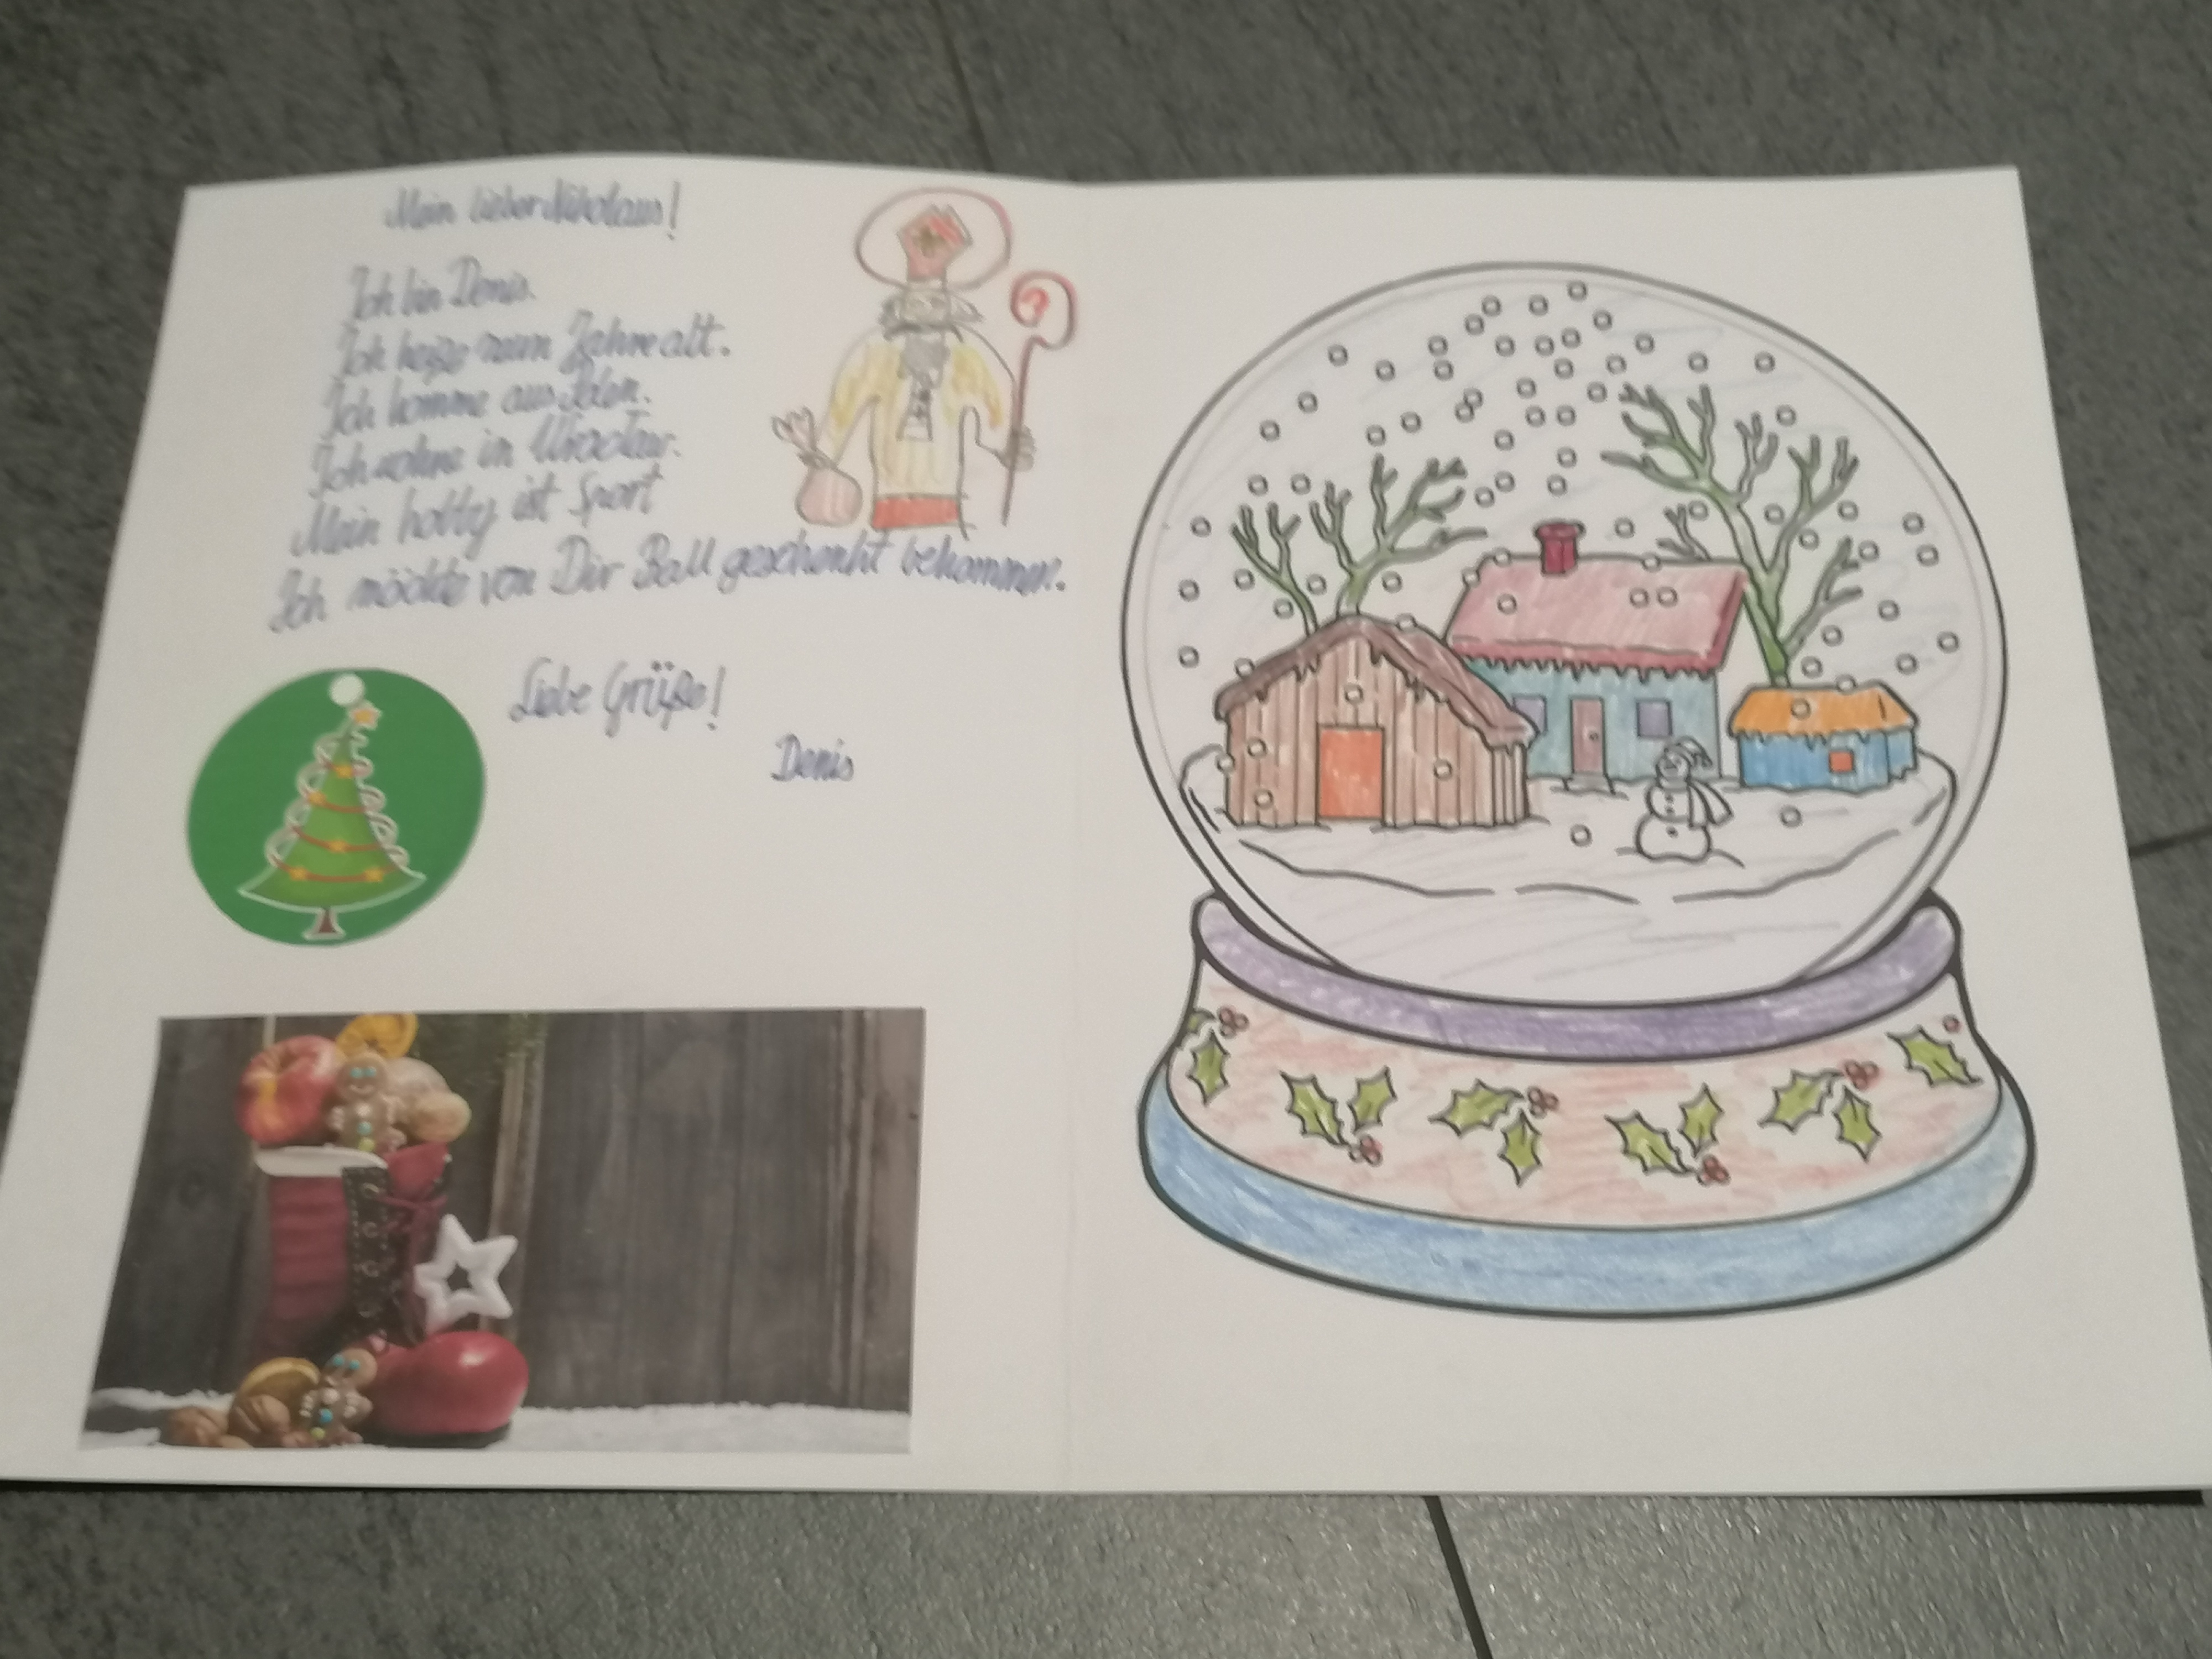 Mein lieber Nikolaus!
Ich bin Denis.
Ich heiße neun Jahre alt.
Ich komme aus Polen.
Ich wohne in Wrocław.
Mein hobby ist Sport
Ich möchte von Dir Ball geschenkt bekommen.
Liebe Grüße!
Denis